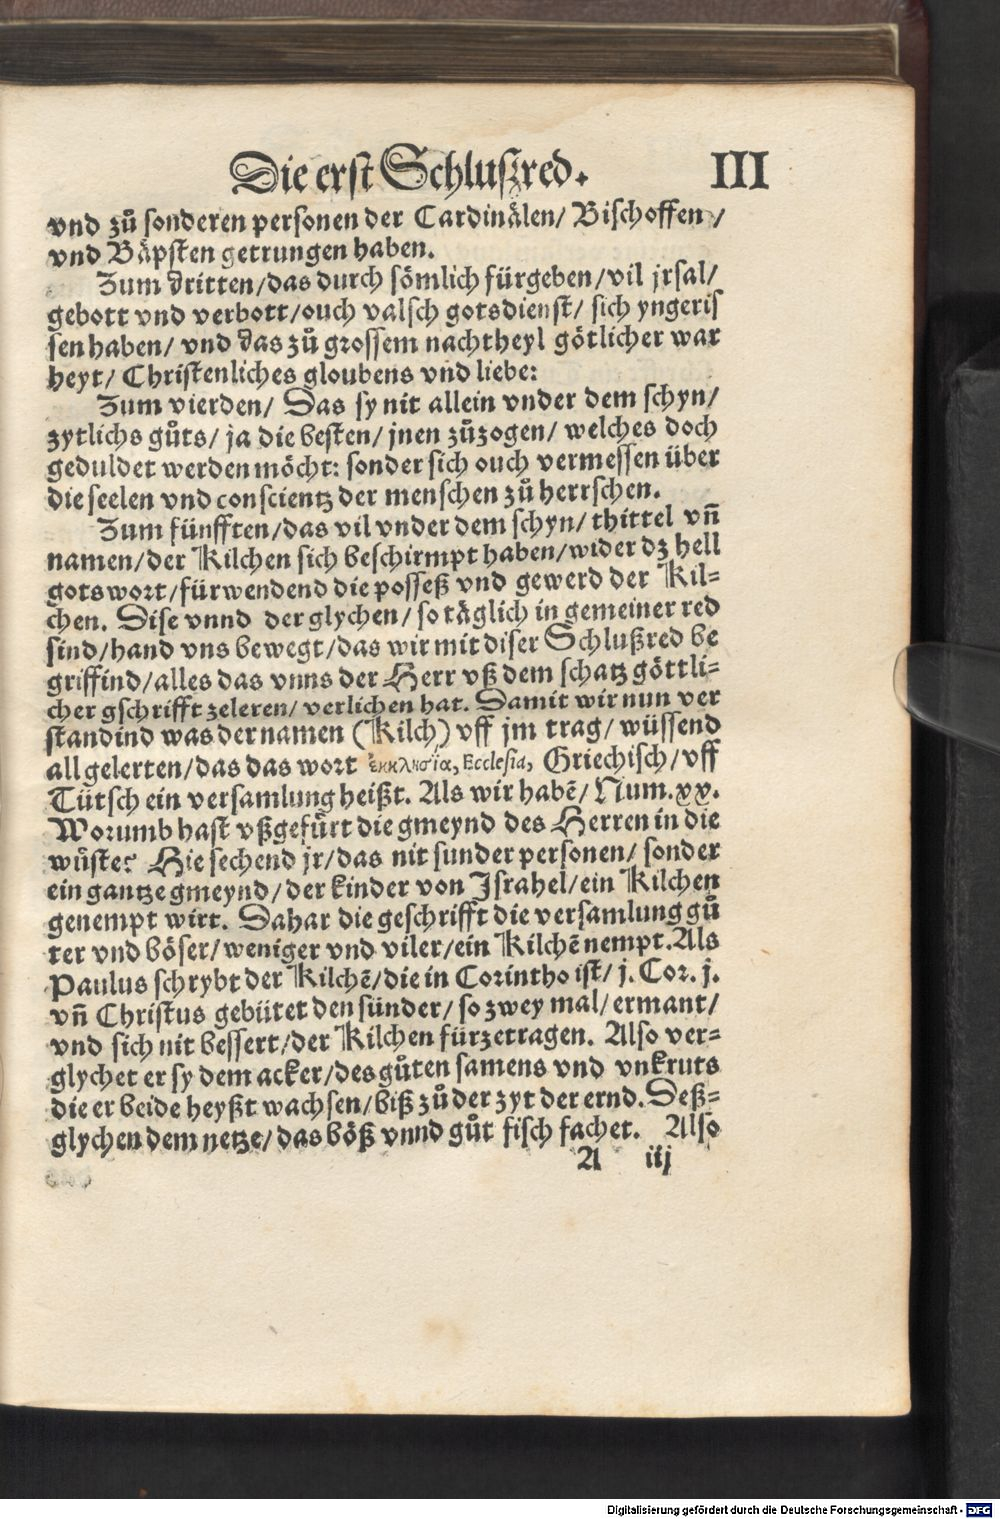 Die erst Schlußred. III
vnd zuͦ sonderen personen der Cardinälen/ Bischoffen/
vnd Bäpsten getrungen haben.
Zum dritten/das durch sömlich fürgeben/vil jrsal/
gebott vnd verbott/ouch valsch gotsdienst/ sich yngeris
sen haben/ vnd das zuͦ grossem nachtheyl götlicher war
heyt/ Christenliches gloubens vnd liebe:
Zum vierden/ Das sy nit allein vnder dem schyn/
zytlichs guͦts/ ja die besten/ jnen zuͦzogen/ welches doch
geduldet werden möcht: sonder sich ouch vermessen über
die seelen vnd conscientz der menschen zuͦ herrschen.
Zum fünfften/das vil vnder dem schyn/ thittel vn̄
namen/der Kilchen sich beschirmpt haben/wider dz hell
gotswort/fürwendend die posseß vnd gewerd der Kil-
chen. Dise vnnd der glychen/ so täglich in gemeiner red
sind/hand vns bewegt/das wir mit diser Schlußred be
griffind/alles das vnns der Herr vß dem schatz göttli-
cher gschrifft zeleren/ verlichen hat. Damit wir nun ver
standind was der namen (Kilch) vff jm trag/ wüssend
all gelerten/das das wort ἐκκλησία, Ecclesia, Griechisch/vff
Tütsch ein versamlung heißt. Als wir habē/ Num.xx.
Worumb hast vßgefuͤrt die gmeynd des Herren in die
wuͤste? Hie sechend jr/das nit sunder personen/ sonder
ein gantze gmeynd/der kinder von Israhel/ein Kilchen
genempt wirt. Dahar die geschrifft die versamlung guͦ
ter vnd böser/weniger vnd viler/ein Kilchē nempt.Als
Paulus schrybt der Kilchē/die in Corintho ist/ j. Cor. j.
vn̄ Christus gebütet den sünder/ so zwey mal/ ermant/
vnd sich nit bessert/der Kilchen fürzetragen. Also ver-
glychet er sy dem acker/des guͦten samens vnd vnkruts
die er beide heyßt wachsen/biß zuͦ der zyt der ernd. Deß-
glychen dem netze/das böß vnnd guͦt fisch fachet. Also
A iij
Digitalisierung gefördert durch die Deutsche Forschungsgemeinschaft - DFG